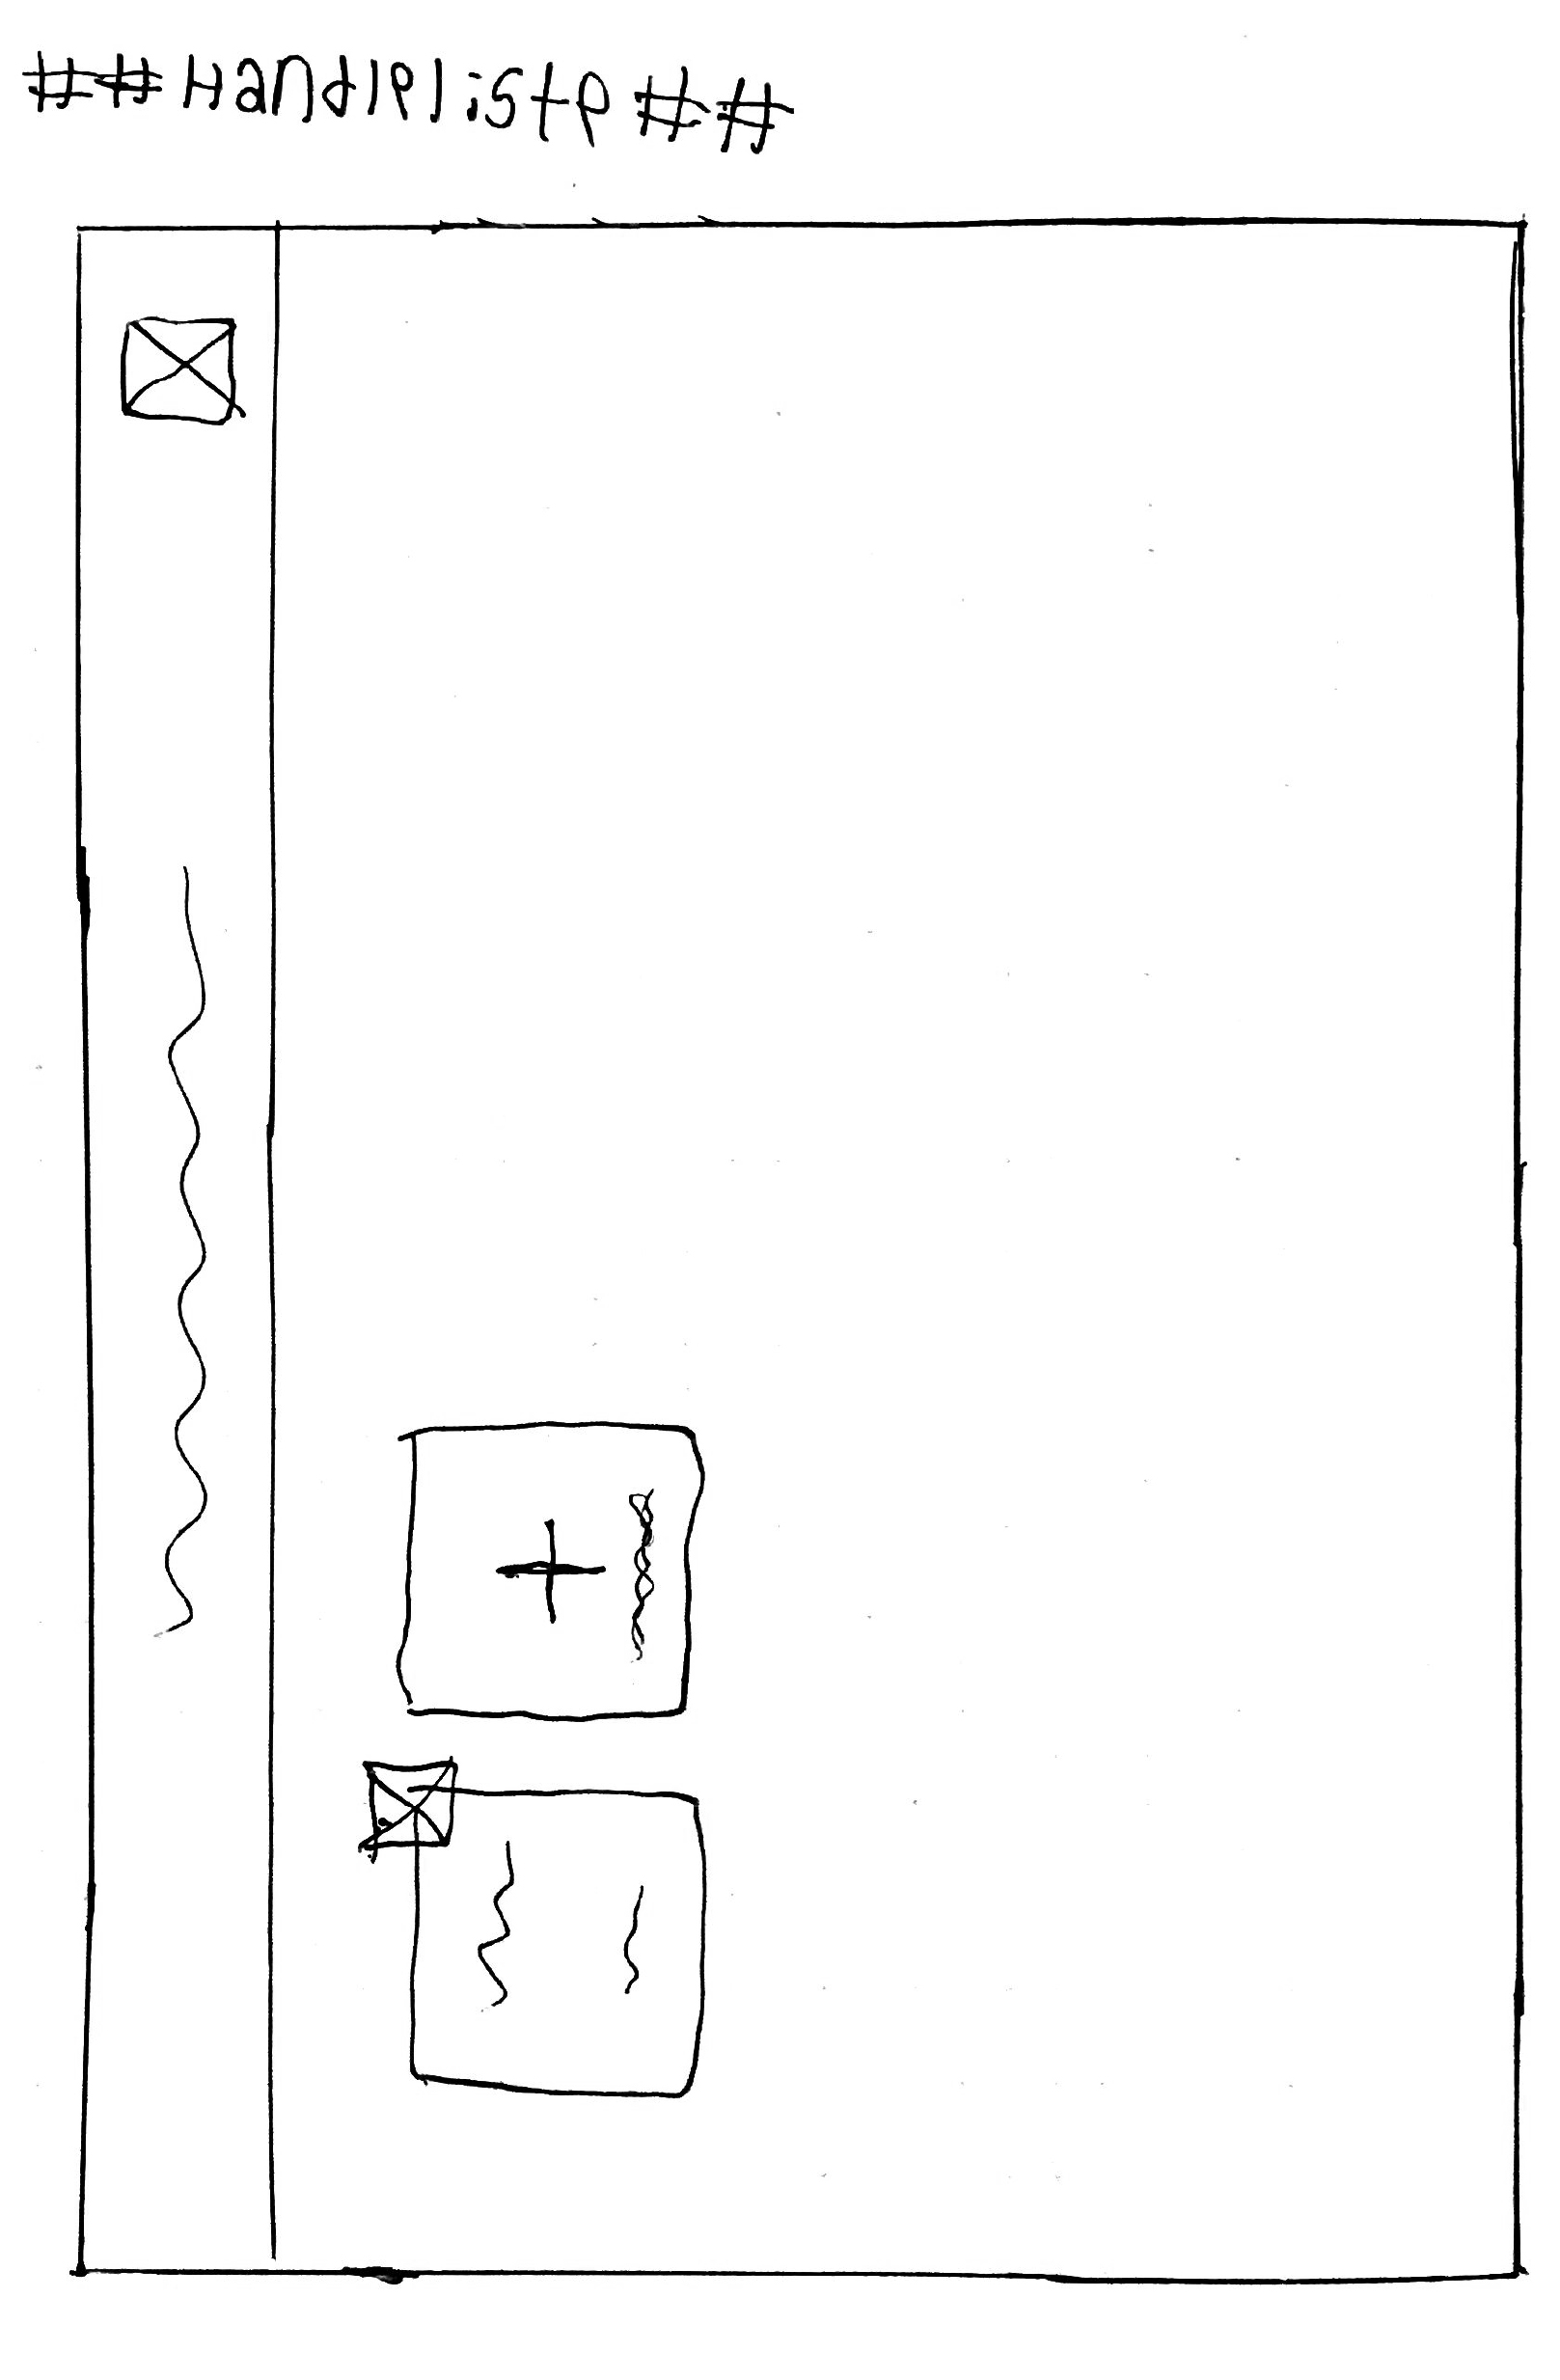 ## Handleliste ##